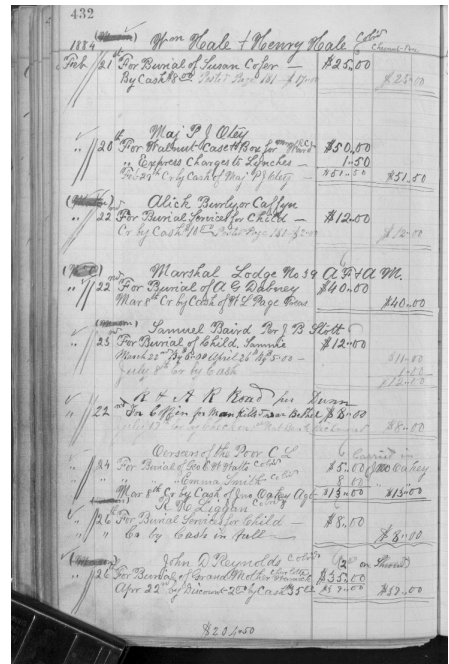 432
1884 Wm Hale & Henry Hale Cold
Feb 21st For Burial of Susan Coser — $25.00
By Cash $8.00 Posted Page 181 $17.00 $25.00
Maj P J Otey
" 20th For Walnut Casett Box for — $50.00
" Express Charges to Lynches — 1.50
Feb 27th Cr by Cash of Maj P J Otey — $51.50 $51.50
Alick Burley or Caffyn
" 22nd For Burial Service for Child — $12.00
Cr by Cash $10.00 Posted Page 181 $2.00 $12.00
Marshal Lodge No 39 A F & A M.
" 22nd For Burial of A G Dabney $40.00
Mar 8th Cr by Cash of W L Page $40.00
Samuel Baird Per J B Slott
" 23rd For Burial of Child, Sammie $12.00
March 22nd By April 26th $5.00 — $11.00
July Cr by Cash 1.00
$12.00
R & A R Road per Dunn
" 22nd For Coffin for Man killed near Bethel $8.00
$8.00
Oversn of the Poor C L Carried in
" 24 For Burial of Geo W Watts Cold $5.00 Jno Oakey
" " " Emma Smith Cold 8.00
Mar 8th Cr by Cash of Jno Oakey Agt — $13.00 $13.00
R N Liggan
" 26th For Burial Services for Child — $8.00
" Co by Cash in full — $8.00
John D Reynolds Cold
" 26 For Burial of Grand Mother Charlotte $35.00
Apr 22nd by Discount 2.00 by Cash 35.00 $37.00 $37.00
$204.50